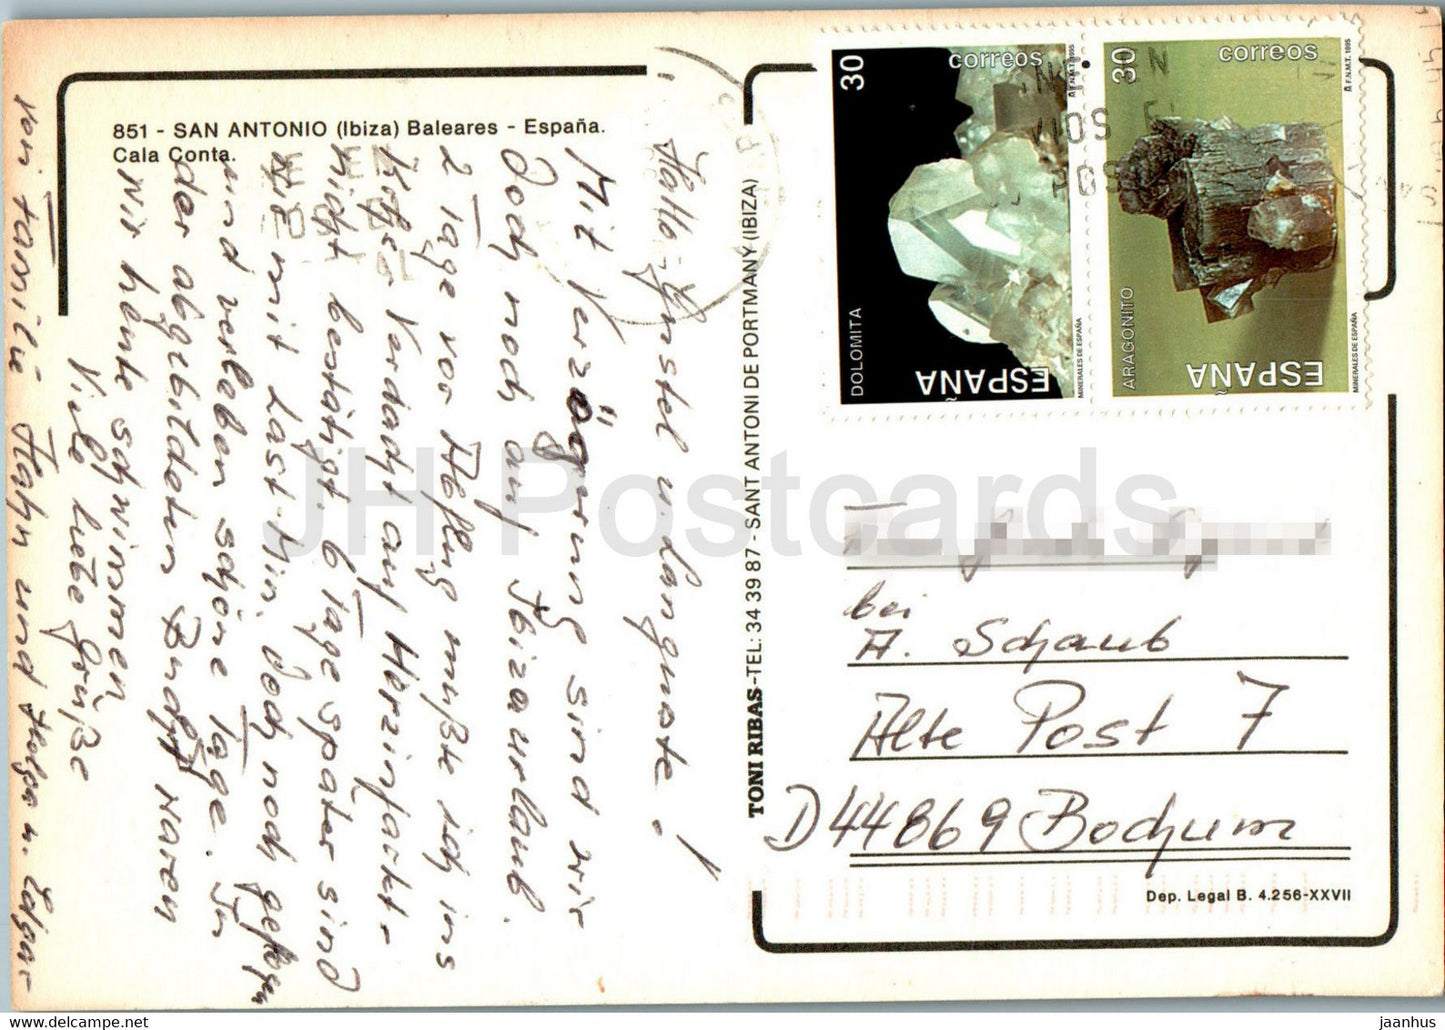 851 - SAN ANTONIO (Ibiza) Baleares - España.
Cala Conta.
Hallo Christel u. Auguste!
Mit Verzögerung sind wir
doch noch auf Ibizaurlaub.
2 Tage vor Abflug mußte ich ins
Verdacht auf Herzinfarkt -
nicht bestätigt. 6 Tage später sind
wir mit Last-Min. doch noch geflogen
und verleben schöne Tage. In
der abgebildeten Bucht waren
wir heute schwimmen
Viele liebe Grüße
von Familie Hahn und Helga u. Edgar
TONI RIBAS-TEL: 34 39 87 - SANT ANTONI DE PORTMANY (IBIZA)
30
correos
F.N.M.T. 1995
DOLOMITA
ESPAÑA
MINERALES DE ESPAÑA
30
correos
F.N.M.T. 1995
ARAGONITO
ESPAÑA
MINERALES DE ESPAÑA
bei
A. Schaub
Alte Post 7
D 44869 Bochum
Dep. Legal B. 4.256-XXVII
JH Postcards
www.delcampe.net
jaanhus